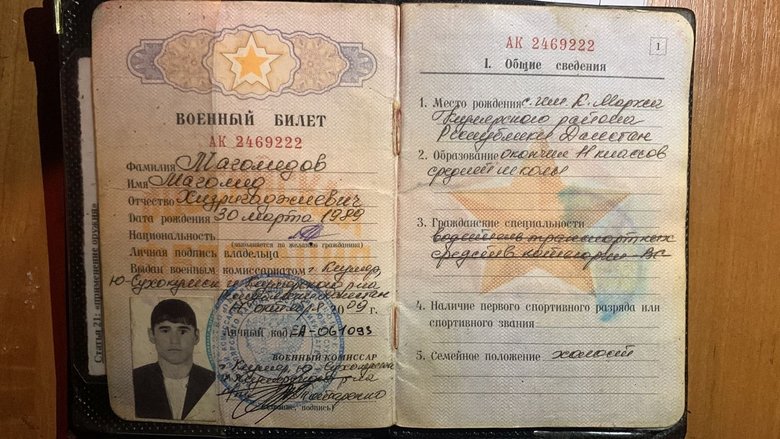 ВОЕННЫЙ БИЛЕТ
АК 2469222
Фамилия Магомедов
Имя Магомед
Отчество Хизригаджиевич
Дата рождения 30 марта 1989
Национальность
(заполняется по желанию гражданина)
Личная подпись владельца
Выдан военным комиссариатом г. Кизляр,
Ю-Сухокумск и Кизлярского р-на
октября
Личный код ЕА-061093
ВОЕННЫЙ КОМИССАР
г. Кизляр, Ю-Сухокумск
и Кизлярского р-на
Статья 21: «применение оружия»
АК 2469222
1
I. Общие сведения
1. Место рождения с. им. К. Маркса
Кизлярского района
Республики Дагестан
2. Образование окончил 11 классов
средней школы
3. Гражданские специальности
водитель транспортных
средств категории ВС
4. Наличие первого спортивного разряда или
спортивного звания
5. Семейное положение холост